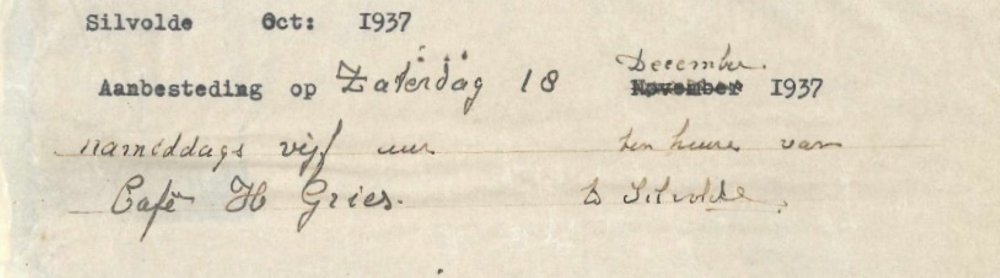 Silvolde Oct: 1937
December.
Aanbesteding op Zaterdag 18 November 1937
namiddags vijf uur ten huize van
Café H Gries. te Silvolde.